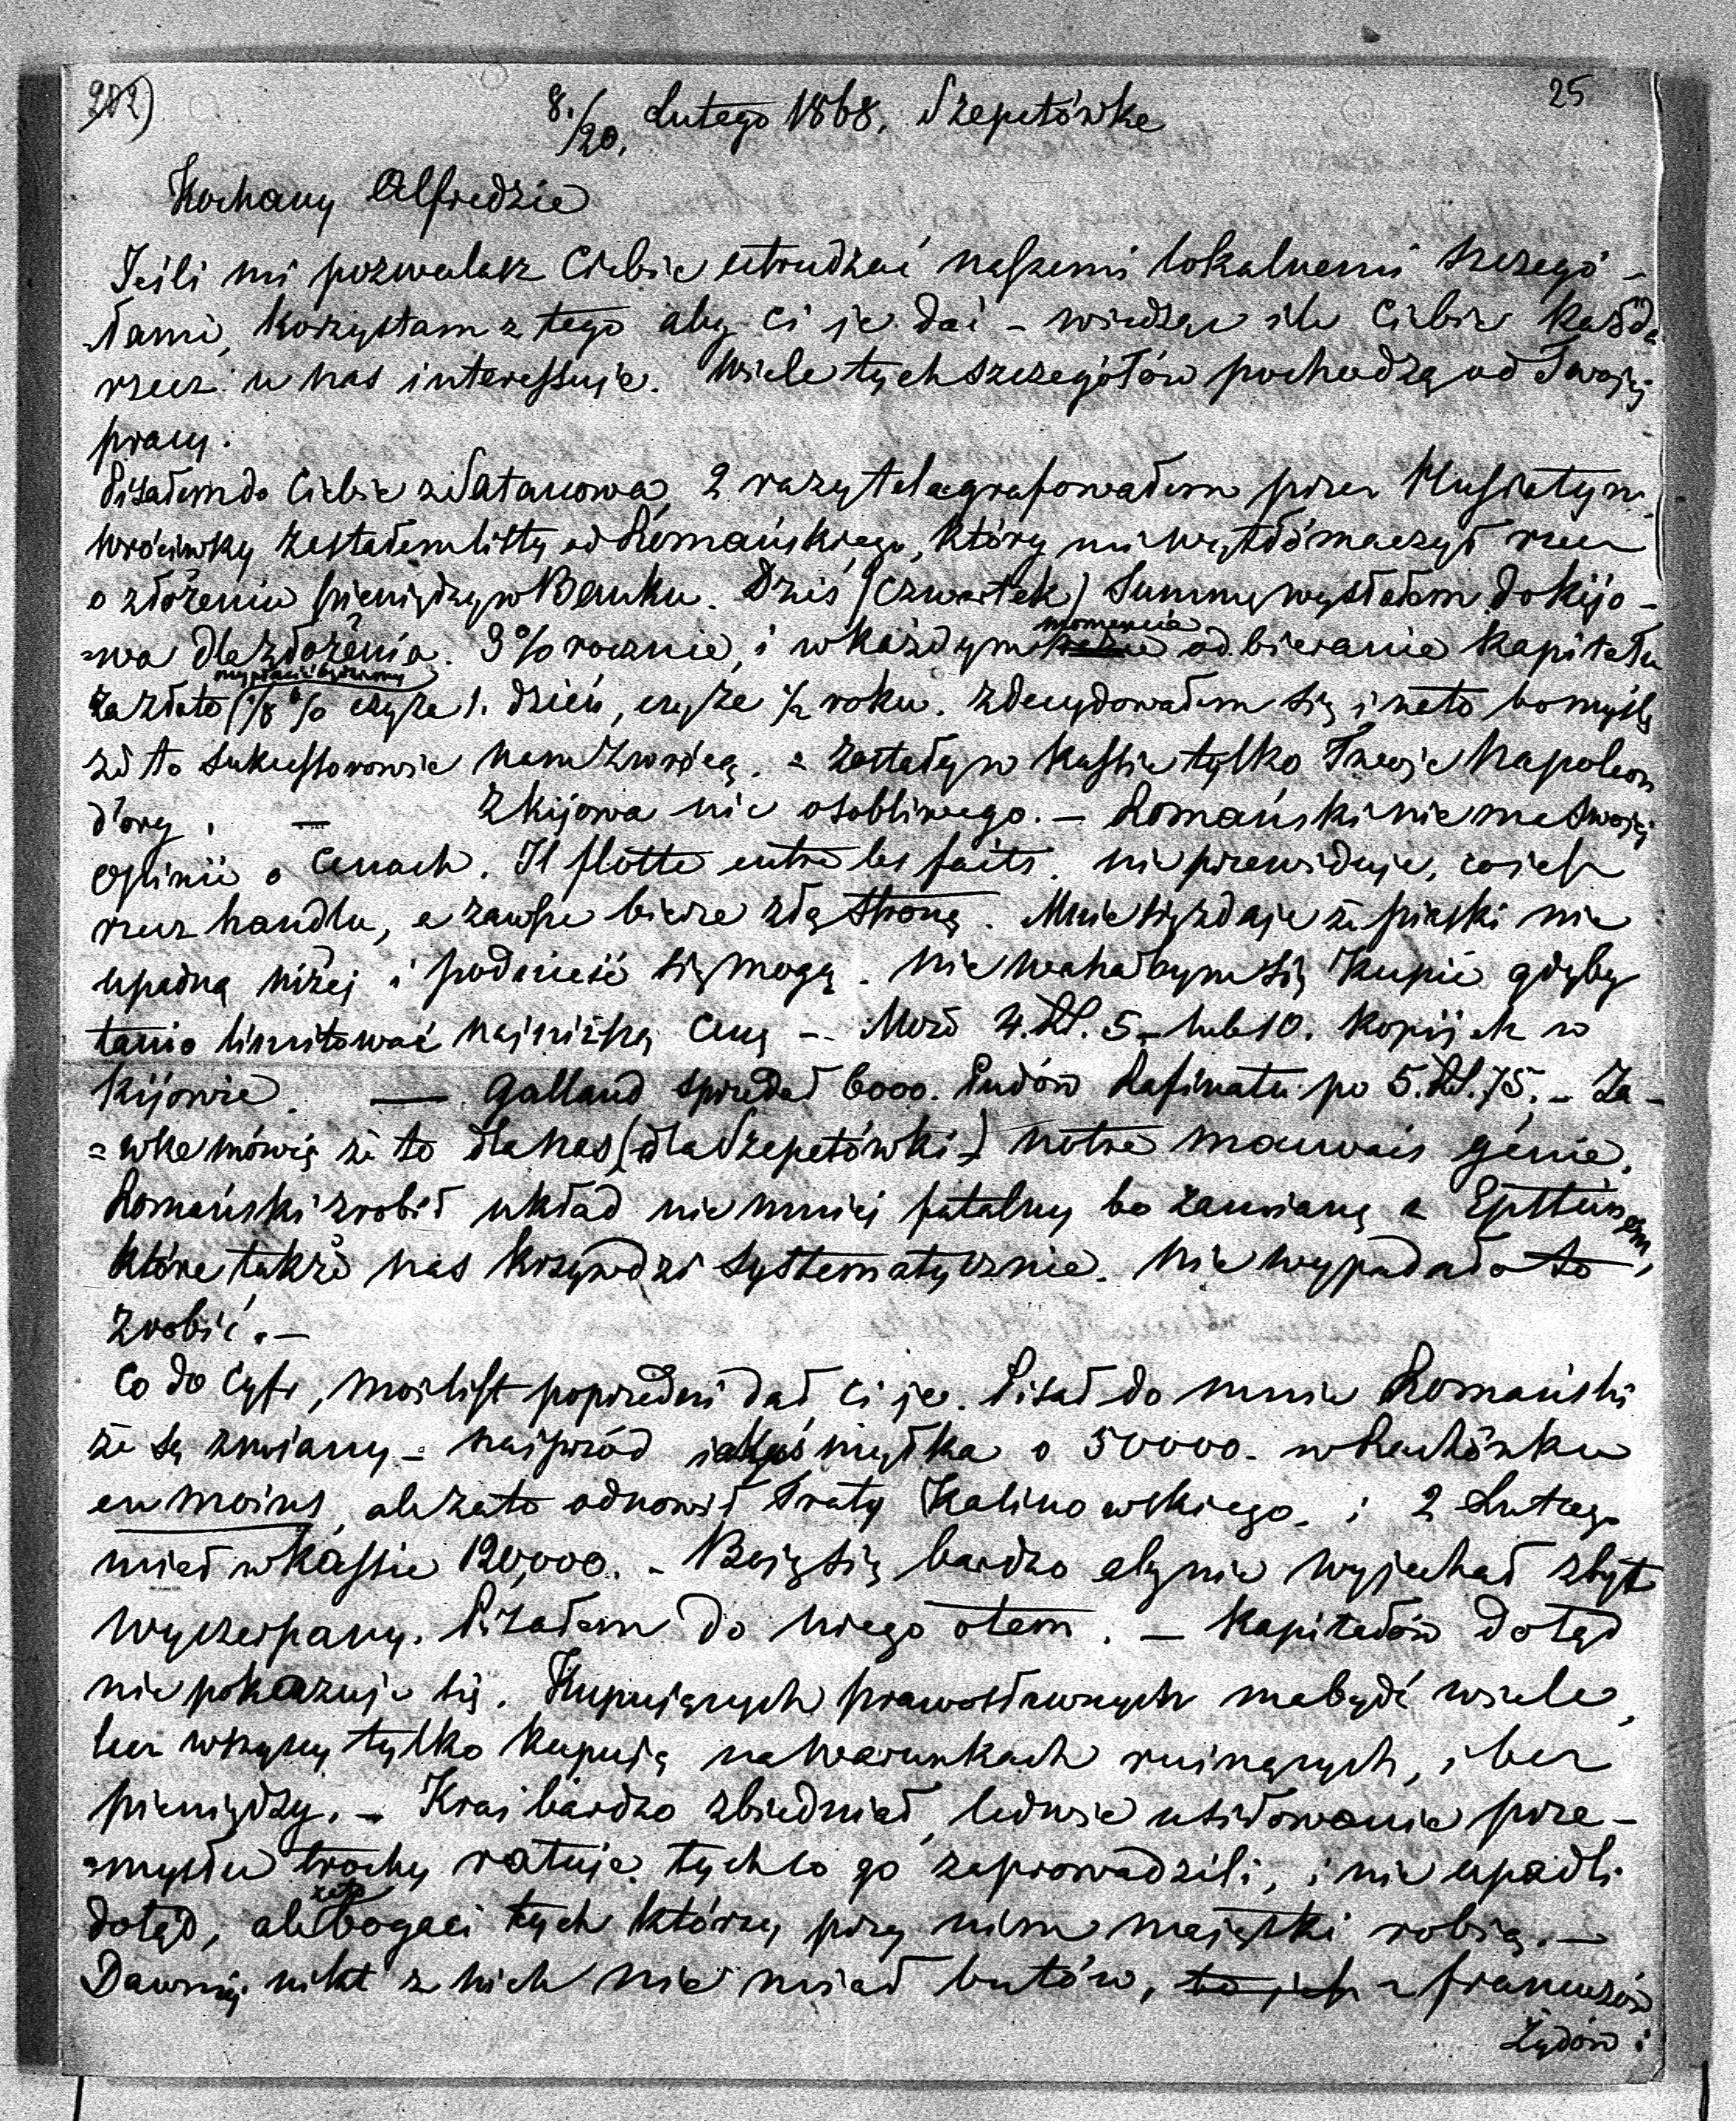 212) 25
8./20. Lutego 1868. Szepetówka
Kochany Alfredzie
Jeśli mi pozwalasz Ciebie utrudzać naszemi lokalnemi szczegó-
łami, korzystam z tego aby ci je dać - wiedząc ile Ciebie każda
rzecz u nas interessuje. Wiele tych szczegółów pochodzą od Twojej
pracy.
Pisałem do Ciebie z Satanowa, 2 razy telegrafowałem przez Husiatyn.
Wróciwszy zastałem listy od Romańskiego, który mi wytłómaczył rzecz
o złożeniu pieniędzy w Banku. Dziś (czwartek) Summę wysłałem do Kijo-
=wa dla złożenia. 3% rocznie, i w każdym momencie odbieranie kapitału
za złoto ( % czy za 1. dzień, czy za ½ roku. Zdecydowałem się i na to bo myślę
że to sukcessorowie nam zwrócą. - zostały w kassie tylko Twoje Napoleon
d'ory. — Z Kijowa nic osobliwego. - Romański nie ma swojej
opinii o cenach. Il flotte entre les faits. nie przewiduje, co jest
rzecz handlu, a zawsze bierze złą stronę. Mnie się zdaje że piaski nie
upadną niżej i podnieść się mogą. Nie wahałbym się kupić gdyby
tanio limitować najniższą cenę - Może 4. RS. 5 - lub 10. kopijek w
Kijowie. — Galland sprzedał 6000. Pudów Rafinatu po 5. RS. 75. - Za-
=wsze mówię że to dla nas (dla Szepetówki) notre mauvais génie.
Romański zrobił układ nie mniej fatalny bo zamianę z Epsteinem,
które także nas krzywdzi systematycznie. Nie wypadało to
zrobić. -
Co do Cyfr, mój list poprzedni dał ci je. Pisał do mnie Romański
że są zmiany - najprzód jakaś myłka o 50000 - w Rachunku
en moins, ale za to odnowił traty Kalinowskiego. i 2 Lutego
miał w Kassie 120,000. - Boję się bardzo aby nie wyjechał zbyt
wyczerpany. Pisałem do niego o tem. - Kapitałów dotąd
nie pokazuje się. Kupujących prawosławnych ma być wiele,
lecz wszyscy tylko kupują na warunkach rujnących, i bez
pieniędzy. - Kraj bardzo zbiedniał, ledwie usiłowanie prze-
=mysłu trochę ratuje tych co go zaprowadzili, i nie upadli
dotąd, ale zato bogaci tych którzy przy nim majątki robią. -
Dawniej nikt z nich nie miał butów, z francuzów
Żydów i